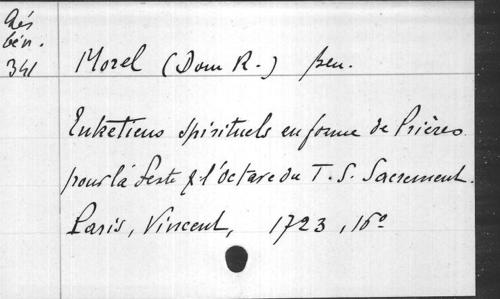 Rés
bén.
341
Morel (Dom R.) ben.
Entretiens spirituels en forme de Prières
pour la feste & l'octave du T. S. Sacrement.
Paris, Vincent, 1723, 16º